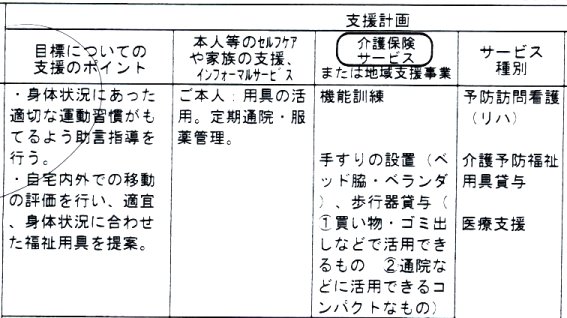 支援計画
目標についての
支援のポイント
本人等のセルフケア
や家族の支援、
インフォーマルサービス
介護保険
サービス
または地域支援事業
サービス
種別
・身体状況にあった
適切な運動習慣がも
てるよう助言指導を
行う。
・自宅内外での移動
の評価を行い、適宜
、身体状況に合わせ
た福祉用具を提案。
ご本人：用具の活
用。定期通院・服
薬管理。
機能訓練
手すりの設置（ベ
ッド脇・ベランダ
）、歩行器貸与（
①買い物・ゴミ出
しなどで活用でき
るもの　②通院な
どに活用できるコ
ンパクトなもの）
予防訪問看護
（リハ）
介護予防福祉
用具貸与
医療支援